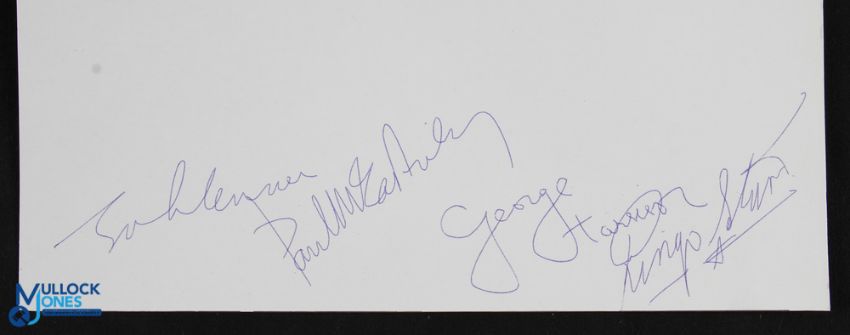 John Lennon
Paul McCartney
George Harrison
Ringo Starr
MULLOCK
JONES